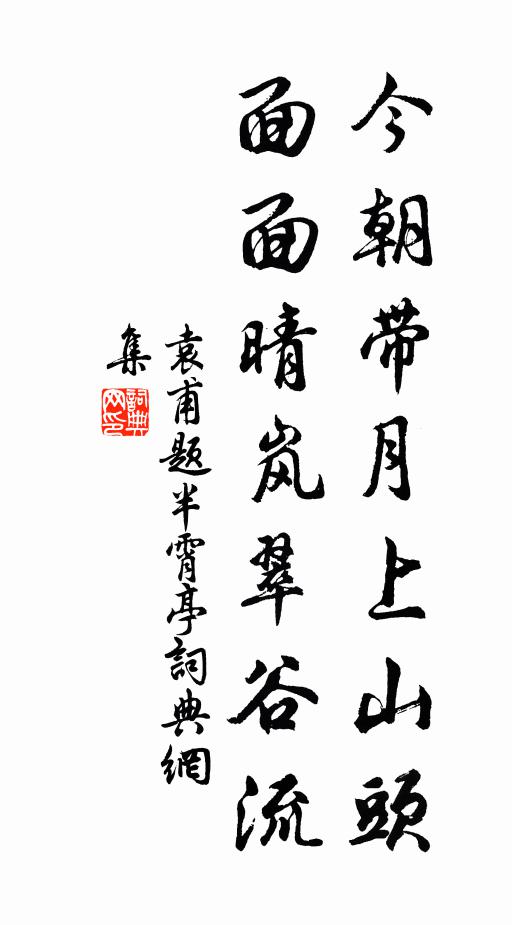 今朝带月上山頭
面面晴岚翠谷流
袁甫题半霄亭詞典網
集
詞典网印